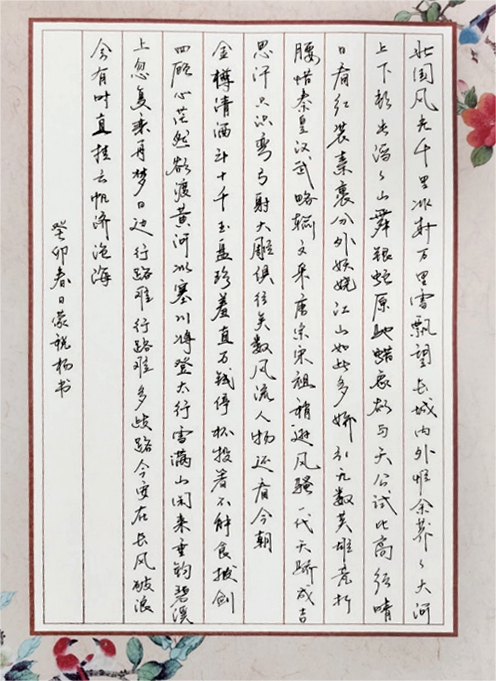 北国风光千里冰封万里雪飘望长城内外惟余莽々大河
上下顿失滔々山舞银蛇原驰蜡象欲与天公试比高须晴
日看红装素裹分外妖娆江山如此多娇引无数英雄竞折
腰惜秦皇汉武略输文采唐宗宋祖稍逊风骚一代天骄成吉
思汗只识弯弓射大雕俱往矣数风流人物还看今朝
金樽清酒斗十千玉盘珍羞直万钱停杯投箸不能食拔剑
四顾心茫然欲渡黄河冰塞川将登太行雪满山闲来垂钓碧溪
上忽复乘舟梦日边行路难行路难多歧路今安在长风破浪
会有时直挂云帆济沧海
癸卯春日蒙祝杨书